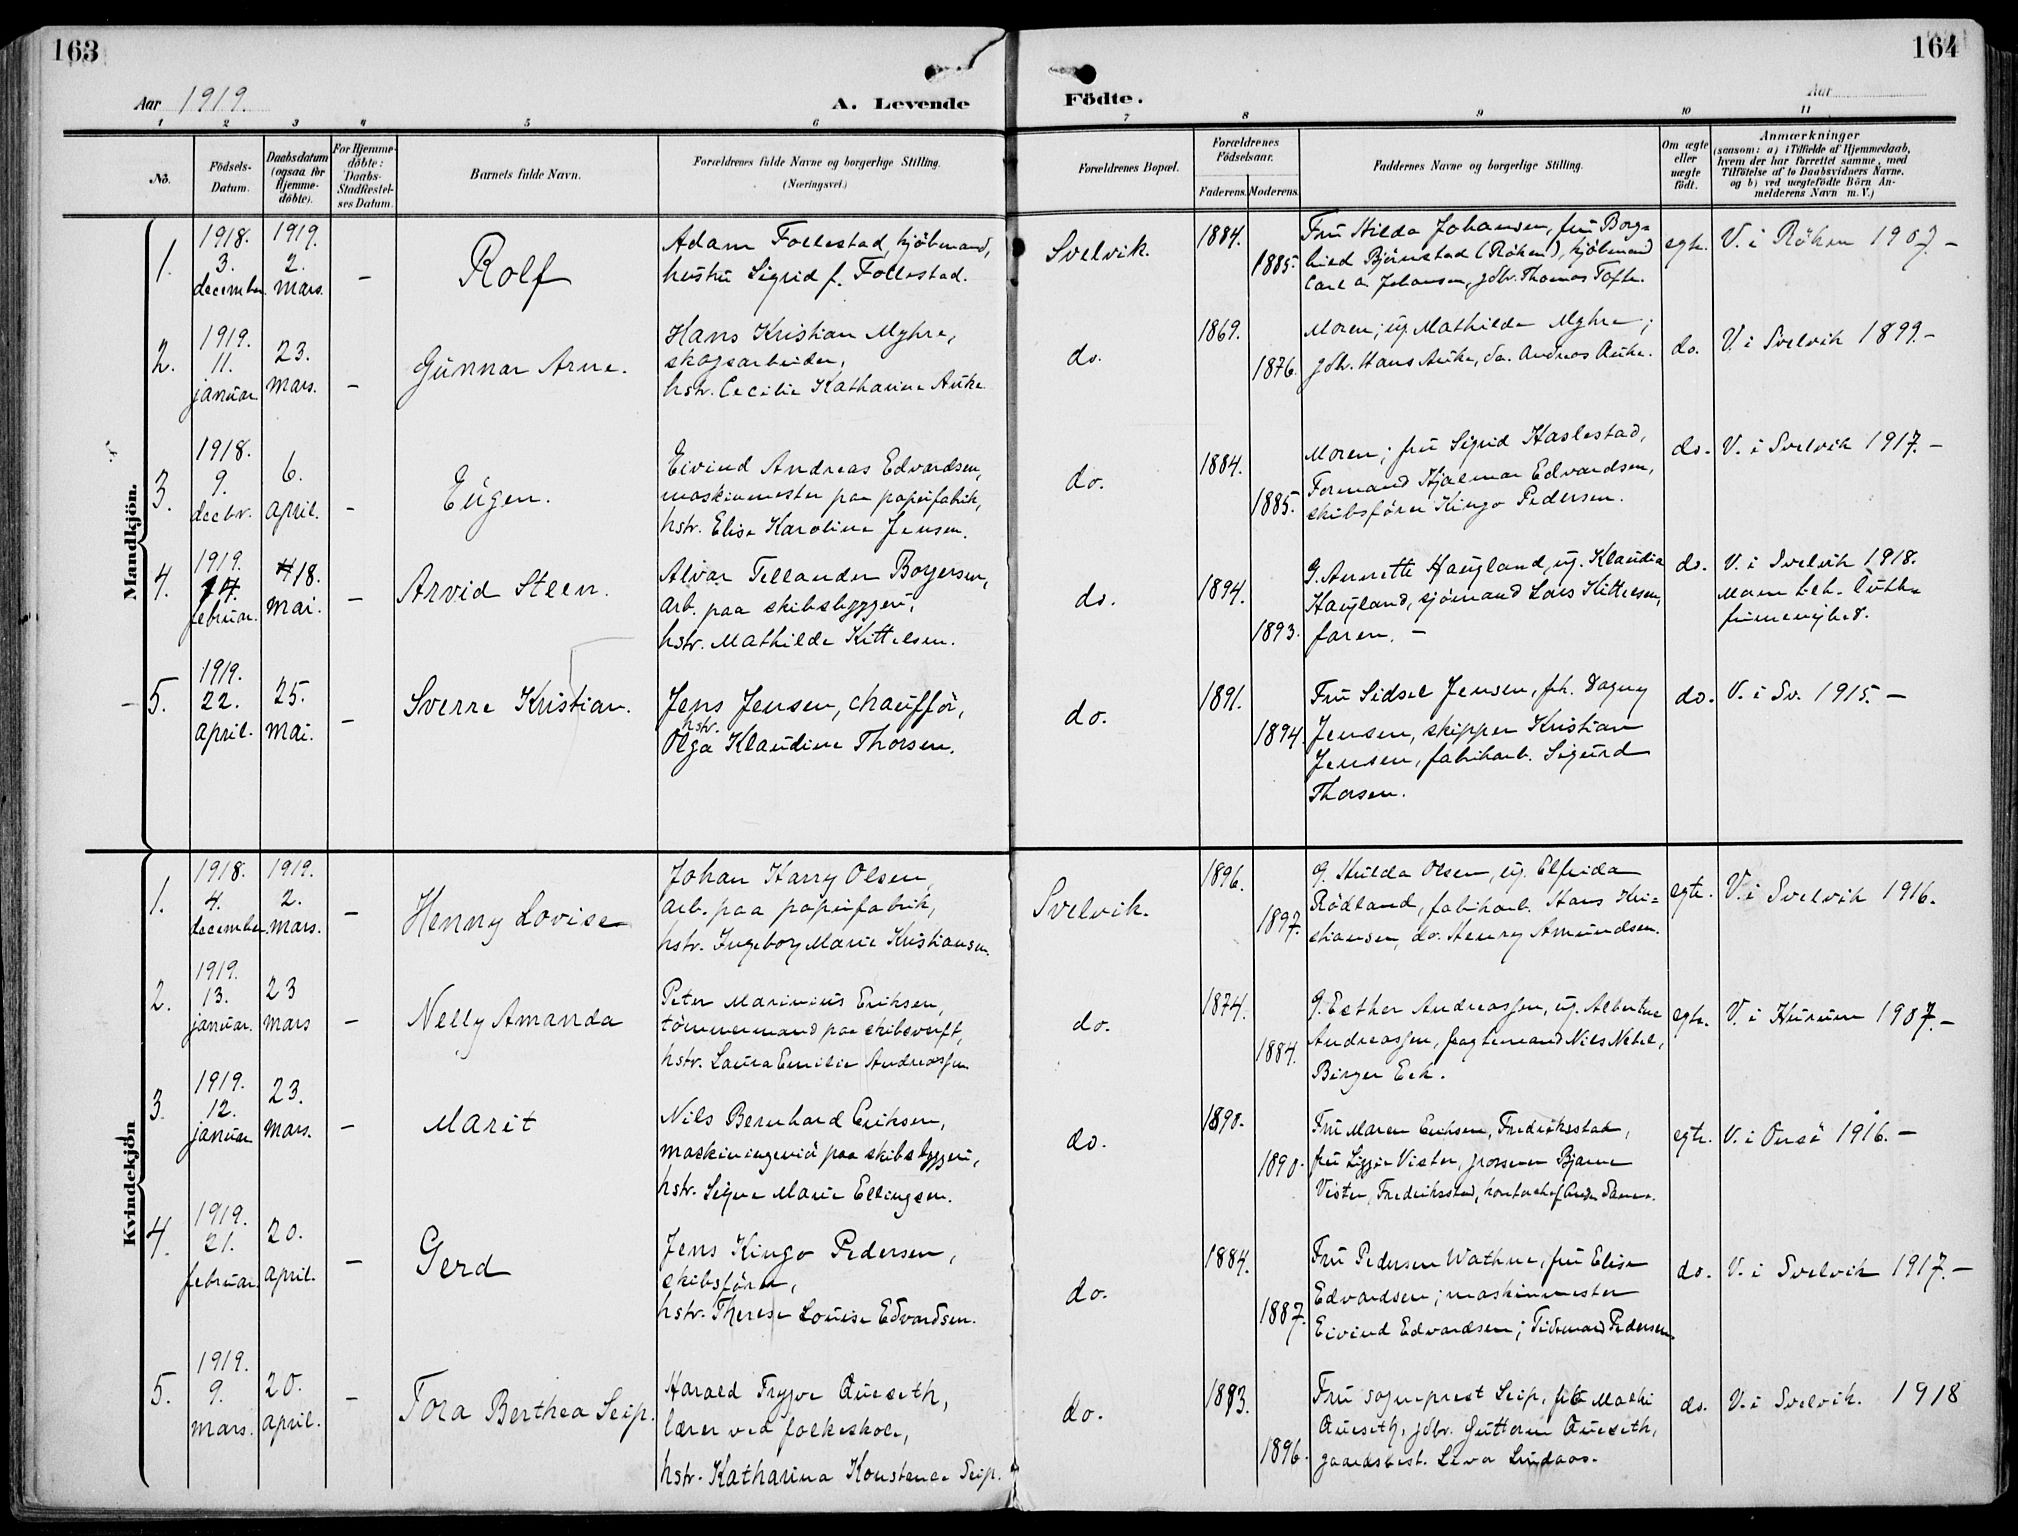 163
164
Aar 1919.
A. Levende
Födte.
Aar
1
2
3
4
5
6
7
8
9
10
11
No.
Födsels-
Datum.
Daabsdatum
(ogsaa for
Hjemme-
döbte).
For Hjemme-
döbte:
Daabs-
Stadfæstel-
ses Datum.
Barnets fulde Navn.
Forældrenes fulde Navne og borgerlige Stilling.
(Næringsvei.)
Forældrenes Bopæl.
Forældrenes
Födselsaar.
Faderens.
Moderens.
Faddernes Navne og borgerlige Stilling.
Om ægte
eller
uægte
født.
Anmærkninger
(saasom: a) i Tilfælde af Hjemmedaab,
hvem der har forrettet samme, med
Tilföielse af to Daabsvidners Navne,
og b) ved uægtefödte Börn An-
melderens Navn m. V.)
Mandkjön.
1.
1918.
3.
december.
1919.
2.
mars.
–
Rolf
Adam Follestad, kjöbmand,
hustru Sigrid f. Follestad.
Svelvik.
1884.
1885.
Fru Hilda Johansen, fru Borg-
hild Björnstad (Röken), kjöbmand
Carl A. Johansen, gdbr. Thomas Tofte.
egte.
V. i Röken 1907. –
2.
1919.
11.
januar
23.
mars.
–
Gunnar Arne.
Hans Kristian Myhre,
skogsarbeider,
hstr. Cecilie Katharine Auke
do.
1869.
1876.
Moren; ug. Mathilde Myhre;
gdbr. Hans Auke, do. Andreas Auke.
do.
V. i Svelvik 1899. –
3.
1918.
9.
decbr.
6.
april.
–
Eugen.
Eivind Andreas Edvardsen,
maskinmester paa papirfabrik,
hstr. Elise Karoline Jensen.
do.
1884.
1885.
Moren; fru Sigrid Haslestad,
Formand Hjalmar Edvardsen,
skibsförer Kingo Pedersen.
do.
V. i Svelvik 1917. –
4.
1919.
14.
februar.
18.
mai.
–
Arvid Steen.
Alvar Tellander Borgersen,
arb. paa skibsbyggeri,
hstr. Mathilde Kittelsen.
do.
1894.
1893.
G. Annette Haugland, ug. Klaudia
Haugland, sjömand Lars Kittelsen,
faren. –
do.
V. i Svelvik 1918.
5.
1919.
22.
april.
25.
mai.
–
Sverre Kristian.
Jens Jensen, chaufför,
hstr.
Olga Klaudine Thorsen.
do.
1891.
1894.
Fru Sidsel Jensen, frk. Dagny
Jensen, skipper Kristian
Jensen, fabrikarb. Sigurd
Thorsen.
do.
V. i Sv. 1915. –
Kvindekjön
1.
1918.
4.
december.
1919.
2.
mars.
–
Henny Lovise
Johan Harry Olsen,
arb. paa papirfabrik,
hstr. Ingeborg Marie Kristiansen.
Svelvik.
1896.
1897.
G. Hulda Olsen, ug. Elfrida
Rödland, fabrikarb. Hans Kri-
stiansen, do. Henry Amundsen.
egte.
V. i Svelvik 1916.
2.
1919.
13.
januar.
23
mars
–
Nelly Amanda
Peter Marinius Eriksen,
tömmermand paa skibsverft,
hstr. Laura Emilie Andreassen
do.
1874.
1884.
G. Esther Andreassen, ug. Albertine
Andreassen, fragtemand Nils Nebel,
Birger Eek.
egte.
V. i Hurum 1907. –
3.
1919.
12.
januar
23.
mars.
–
Marit
Nils Bernhard Eriksen,
maskiningeniör paa skibsbyggeri,
hstr. Signe Marie Ellingsen.
do.
1890.
1890.
Fru Maren Eriksen, Fredriksstad,
fru Lizzie Vister, grosserer Bjarne
Vister, Fredriksstad,
egte.
V. i Onsö 1916. –
4.
1919.
21.
februar.
20.
april.
–
Gerd
Jens Kingo Pedersen,
skibsförer,
hstr. Therese Louise Edvardsen.
do.
1884.
1887.
Fru Pedersen Wathne, fru Elise
Edvardsen; maskinmester
Eivind Edvardsen; Tidemand Pedersen.
do.
V. i Svelvik 1917. –
5.
1919.
9.
mars.
20.
april.
–
Tora Berthea Seip.
Harald Trygve Aueseth,
lærer ved folkeskole,
hstr. Katharina Konstance Seip.
do.
1883.
1896.
Fru sogneprest Seip, Malhi
Aueseth, gdbr. Guttorm Aueseth,
gaardsbest. Lindaas.
do.
V. i Svelvik. 1918